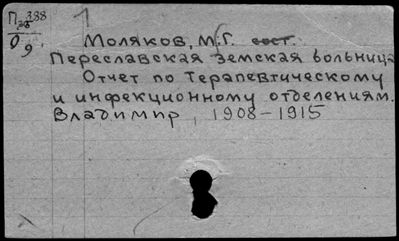 П 388
О 9
1
Моляков, М.Г. сост.
Переславская земская больница
Отчет по терапевтическому
и инфекционному отделениям.
Владимир, 1908-1915